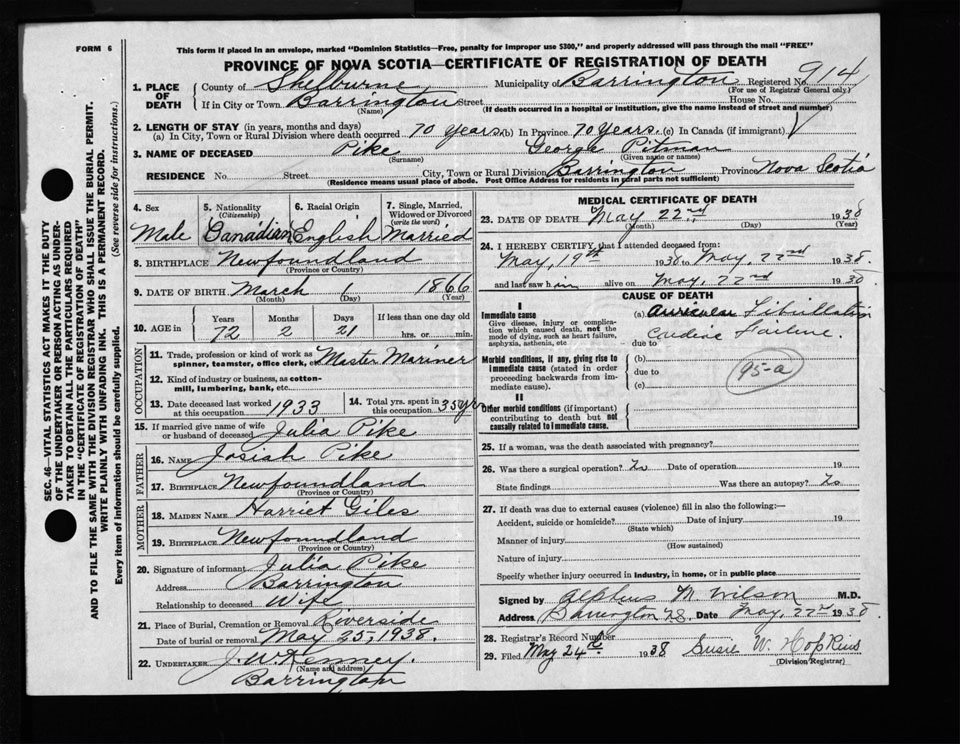 FORM 6
This form if placed in an envelope, marked "Dominion Statistics—Free, penalty for improper use $300," and properly addressed will pass through the mail "FREE"
PROVINCE OF NOVA SCOTIA—CERTIFICATE OF REGISTRATION OF DEATH
1. PLACE OF DEATH
County of Shelburne Municipality of Barrington Registered No. 914
(For use of Registrar General only)
If in City or Town Barrington Street House No.
(Name) (If death occurred in a hospital or institution, give the name instead of street and number)
2. LENGTH OF STAY (in years, months and days)
(a) In City, Town or Rural Division where death occurred 70 years (b) In Province 70 Years. (c) In Canada (if immigrant)
3. NAME OF DECEASED Pike George Pitman
(Surname) (Given name or names)
RESIDENCE No. Street City, Town or Rural Division Barrington Province Nova Scotia
(Residence means usual place of abode. Post Office Address for residents in rural parts not sufficient)
4. Sex Male
5. Nationality (Citizenship) Canadian
6. Racial Origin English
7. Single, Married, Widowed or Divorced (write the word) Married
8. BIRTHPLACE Newfoundland
(Province or Country)
9. DATE OF BIRTH March 1 1866
(Month) (Day) (Year)
10. AGE in Years Months Days If less than one day old
72 2 21 hrs. or min.
OCCUPATION
11. Trade, profession or kind of work as spinner, teamster, office clerk, etc. Master Mariner
12. Kind of industry or business, as cotton-mill, lumbering, bank, etc.
13. Date deceased last worked at this occupation 1933
14. Total yrs. spent in this occupation 35 yrs
15. If married give name of wife or husband of deceased Julia Pike
FATHER
16. NAME Josiah Pike
17. BIRTHPLACE Newfoundland
(Province or Country)
MOTHER
18. MAIDEN NAME Harriet Giles
19. BIRTHPLACE Newfoundland
(Province or Country)
20. Signature of informant Julia Pike
Address Barrington
Relationship to deceased Wife
21. Place of Burial, Cremation or Removal Riverside
Date of burial or removal May 25-1938.
22. UNDERTAKER J. W. Kenney.
(Name and address)
Barrington
MEDICAL CERTIFICATE OF DEATH
23. DATE OF DEATH May 22nd 1938
(Month) (Day) (Year)
24. I HEREBY CERTIFY, that I attended deceased from:
May, 19th 1938 to May, 22nd 1938.
and last saw him alive on May, 22nd 1938
CAUSE OF DEATH
I
Immediate cause
Give disease, injury or complication which caused death, not the mode of dying, such as heart failure, asphyxia, asthenia, etc.
(a) Auricular Fibrillation
Cardiac Failure.
due to
Morbid conditions, if any, giving rise to immediate cause (stated in order proceeding backwards from immediate cause).
(b)
due to 95-a
(c)
II
Other morbid conditions (if important) contributing to death but not causally related to immediate cause.
25. If a woman, was the death associated with pregnancy?
26. Was there a surgical operation? No Date of operation 19
State findings Was there an autopsy? No
27. If death was due to external causes (violence) fill in also the following:—
Accident, suicide or homicide? Date of injury 19
(State which)
Manner of injury
(How sustained)
Nature of injury
Specify whether injury occurred in industry, in home, or in public place
Signed by Alpheus M. Wilson M.D.
Address. Barrington N.S. Date May, 22nd 1938
28. Registrar's Record Number
29. Filed May 24th 1938 Susie W. Hopkins
(Division Registrar)
SEC. 46—VITAL STATISTICS ACT MAKES IT THE DUTY
OF THE UNDERTAKER OR PERSON ACTING AS UNDER-
TAKER TO OBTAIN ALL THE PARTICULARS REQUIRED
IN THE "CERTIFICATE OF REGISTRATION OF DEATH"
AND TO FILE THE SAME WITH THE DIVISION REGISTRAR WHO SHALL ISSUE THE BURIAL PERMIT.
WRITE PLAINLY WITH UNFADING INK. THIS IS A PERMANENT RECORD.
Every item of information should be carefully supplied. (See reverse side for instructions.)